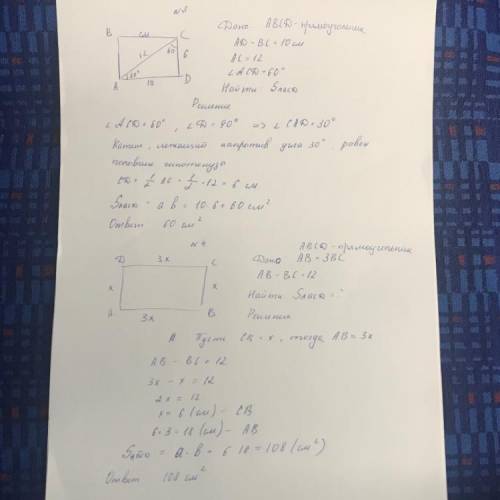 №3
Дано ABCD - прямоугольник
AD = BC = 10 см
AC = 12
∠ACD = 60°
Найти Sавсд
B см C
12 60 6
A 30° 10 D
Решение
∠ACD = 60°, ∠D = 90° => ∠CAD = 30°
Катет, лежащий напротив угла 30° равен
половине гипотенузы
CD = 1/2 AC = 1/2 · 12 = 6 см
Sавсд = a b = 10 · 6 = 60 см²
Ответ 60 см²
№4
ABCD - прямоугольник
Дано AB = 3BC
AB - BC = 12
Найти Sавсд - ?
D 3x C
x x
A 3x B
Решение
Пусть CB - x, тогда AB = 3x
AB - BC = 12
3x - x = 12
2x = 12
x = 6 (см) - CB
6 · 3 = 18 (см) - AB
= a · b = 6 18 = 108 (см²)
Ответ 108 см²